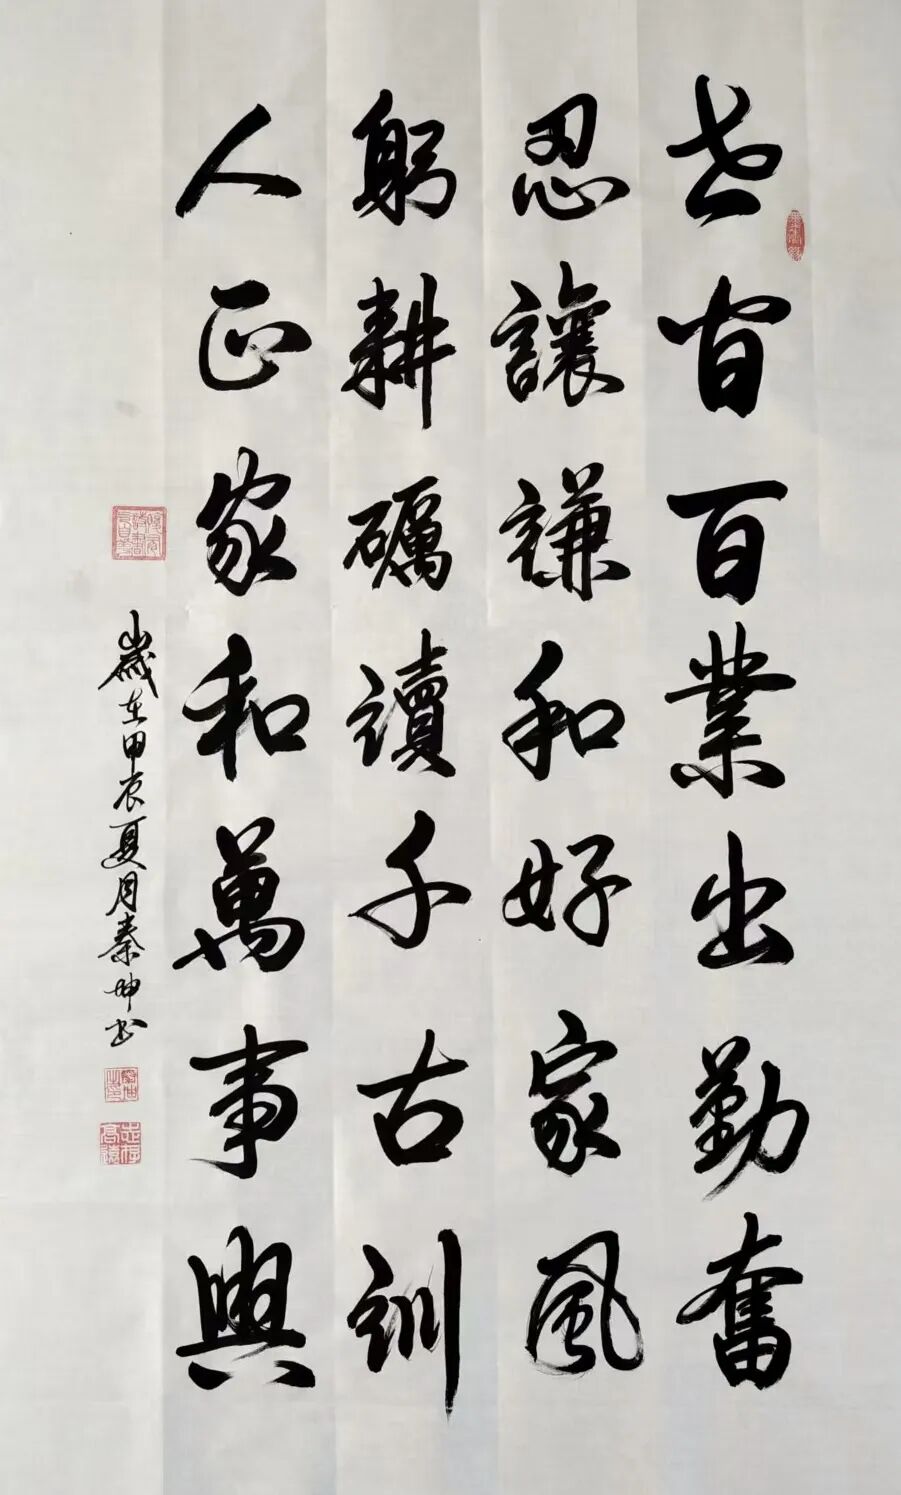 世間百業出勤奮
忍讓謙和好家風
躬耕礪讀千古訓
人正家和萬事興
歲在甲辰夏月秦坤书